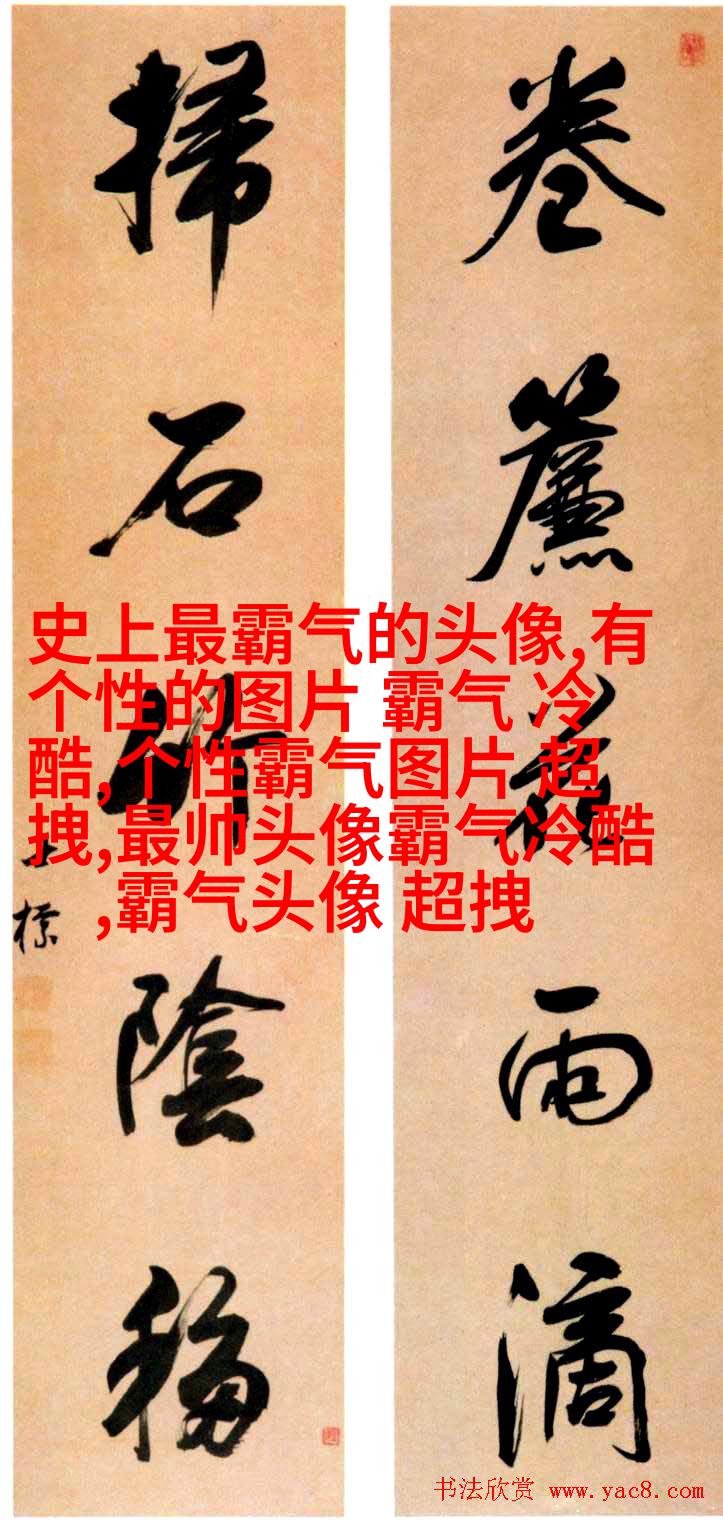 卷簾花雨滴
掃石竹陰移
士標
史上最霸气的头像,有
个性的图片 霸气 冷
酷,个性霸气图片 超
拽,最帅头像霸气冷酷
,霸气头像 超拽
书法欣赏 www.yac8.com